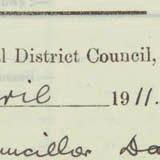 l District Council,
ril 1911.
uncillor Da